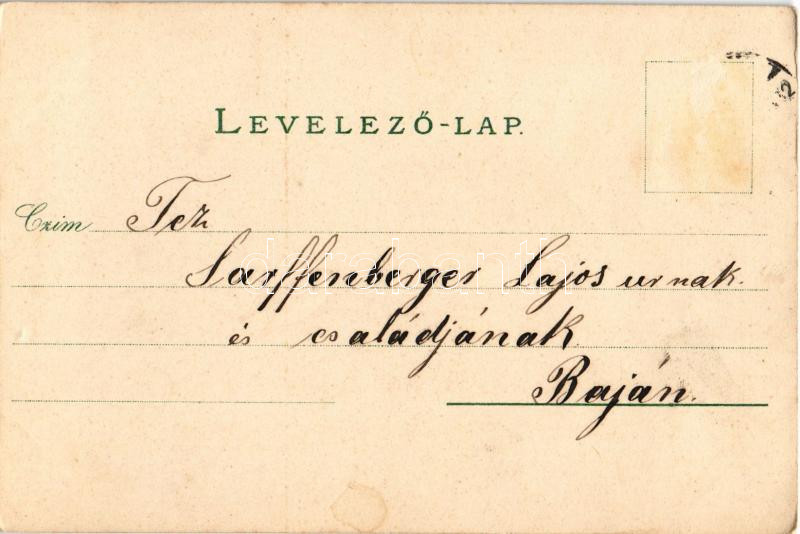 LEVELEZŐ-LAP.
Czim Tez
Sarffenberger Lajos urnak.
és családjának
Baján.